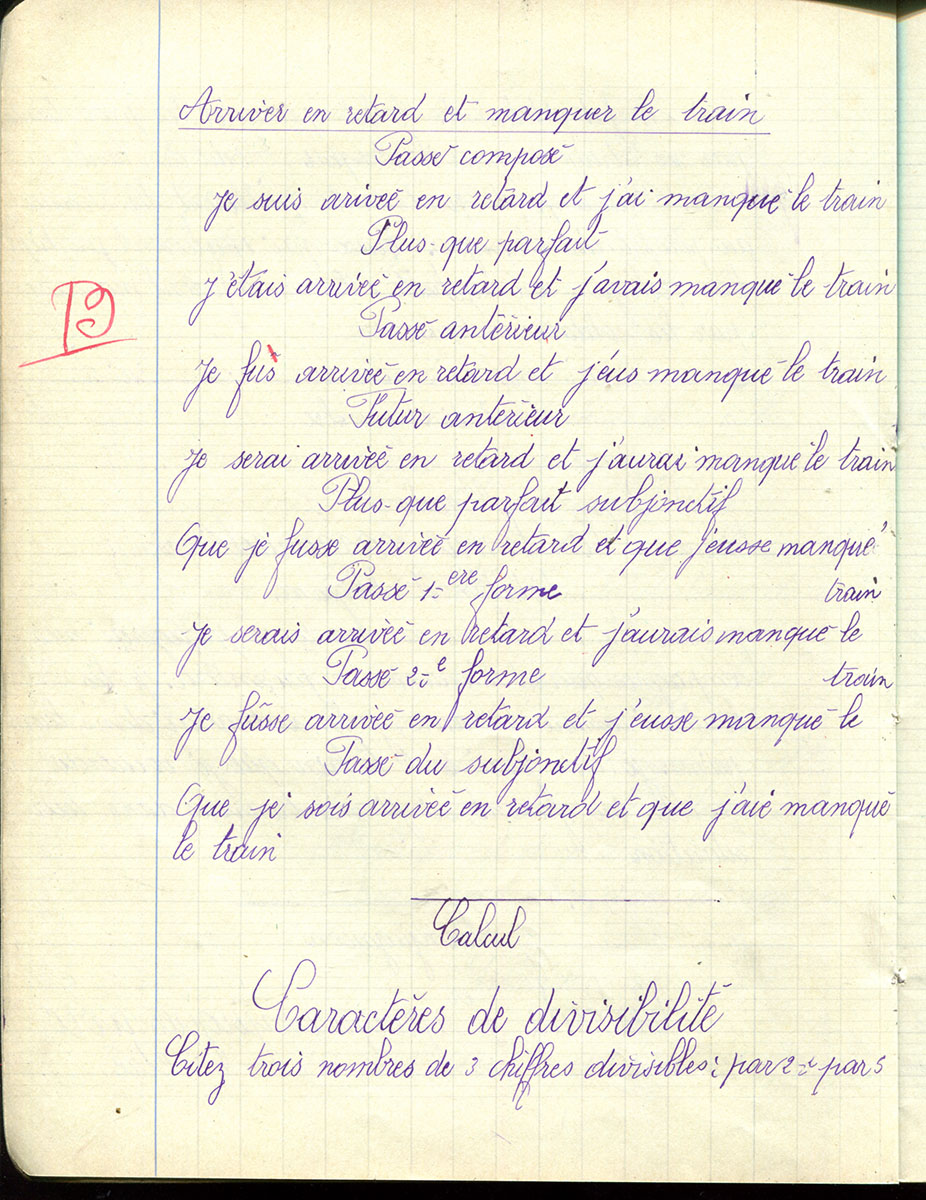 Arriver en retard et manquer le train
Passé composé
Je suis arivée en retard et j'ai manqué le train
Plus-que parfait
J'étais arrivée en retard et j'avais manqué le train
Passé antérieur
B
Je fus arrivée en retard et j'eus manqué le train
Futur antérieur
Je serai arrivée en retard et j'aurai manqué le train
Plus-que parfait subjonctif
Que je fusse arrivée en retard et que j'eusse manqué
train
Passé 1ère forme
Je serais arrivée en retard et j'aurais manqué le
train
Passé 2e forme
Je fûsse arrivée en retard et j'eusse manqué le
Passé du subjonctif
Que je sois arrivée en retard et que j'aie manqué
le train
Calcul
Caractères de divisibilité
Citez trois nombres de 3 chiffres divisibles : par 2 - par 5